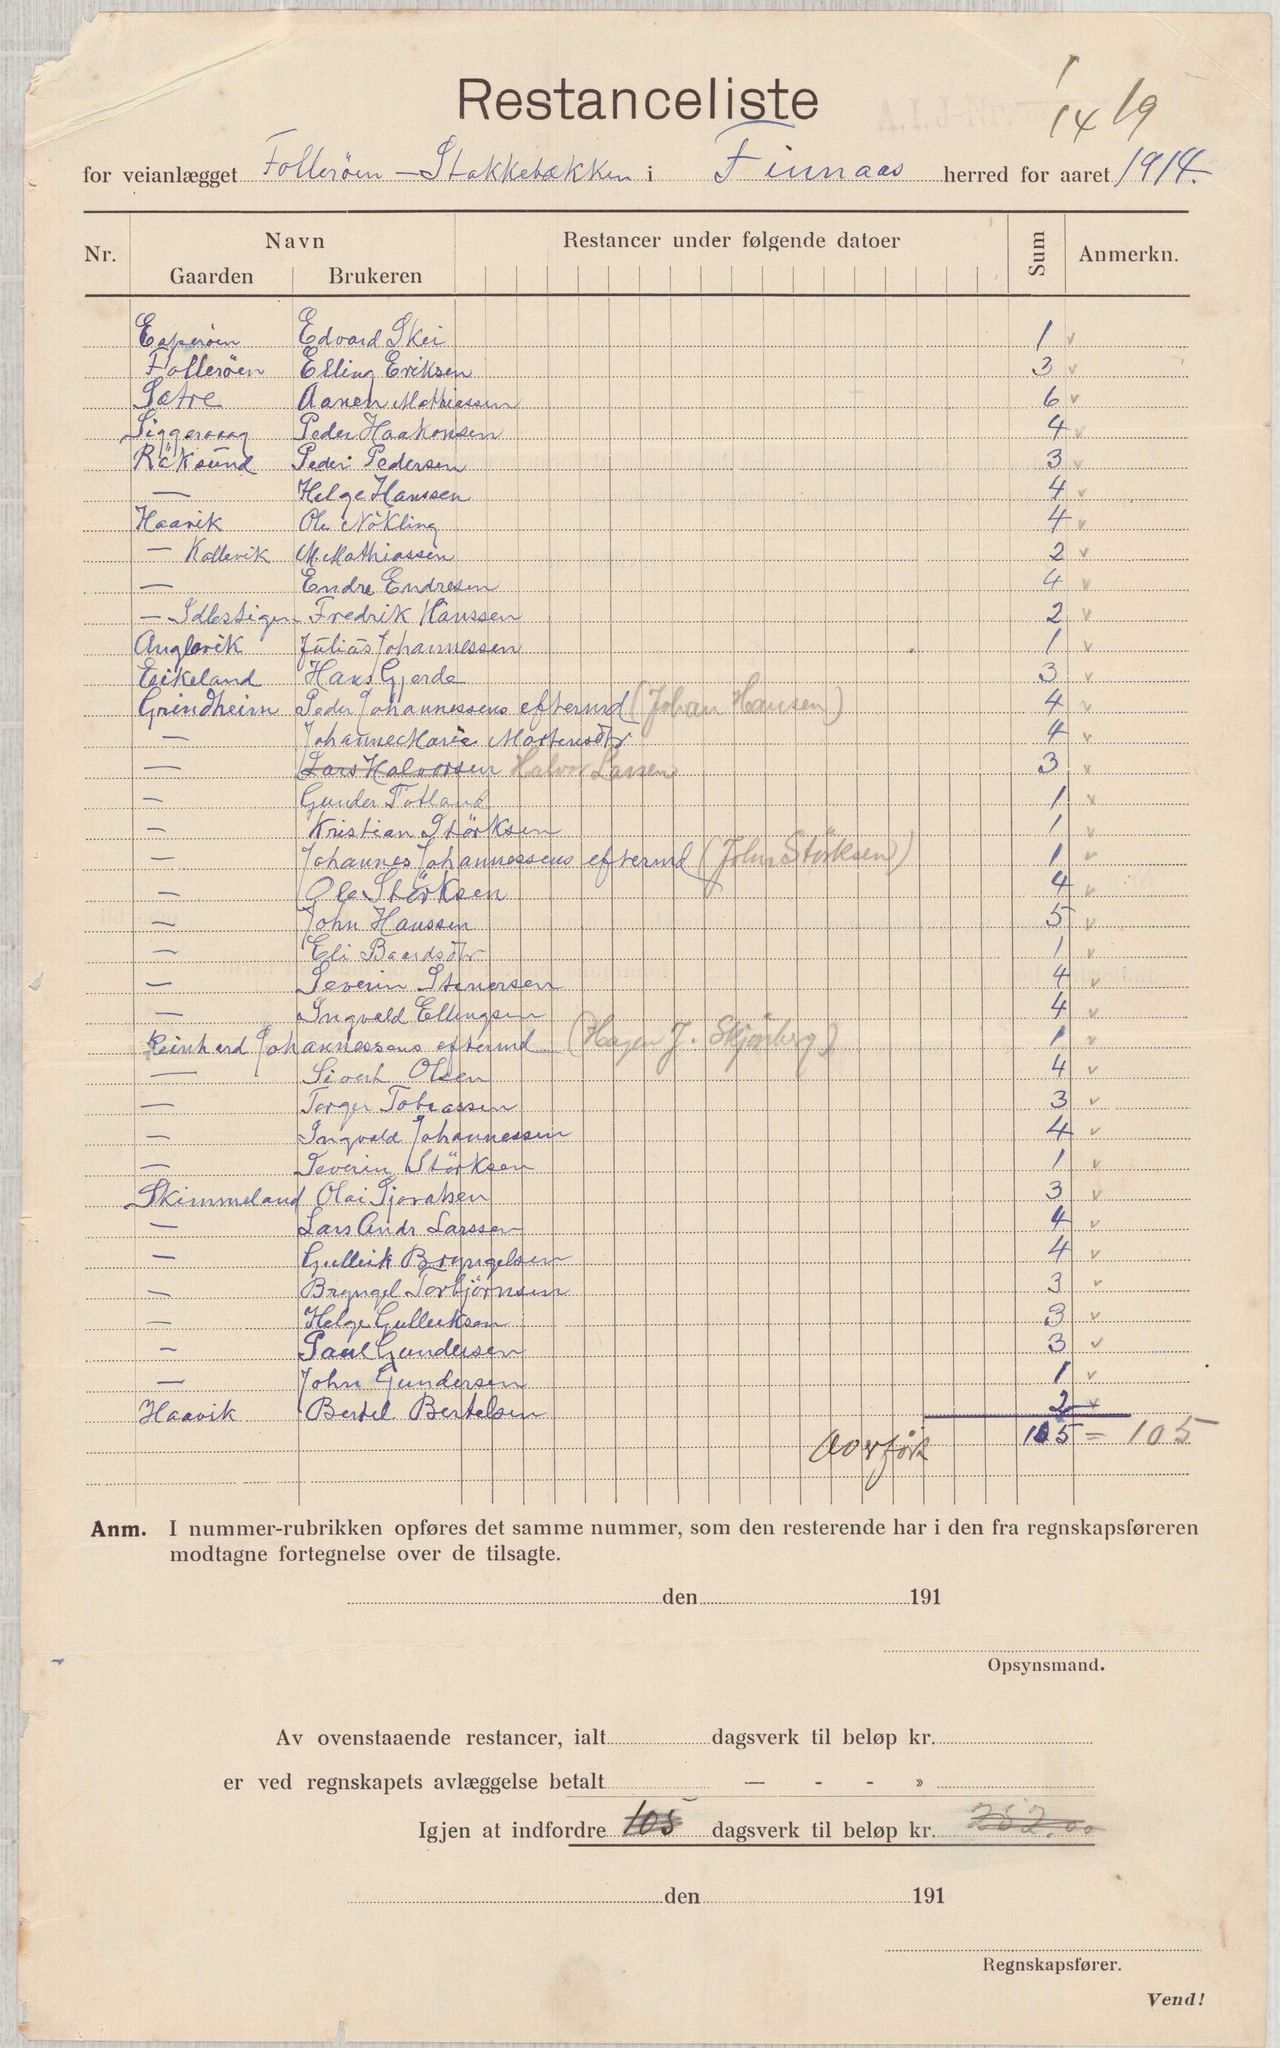 1
14 19
Restanceliste
for veianlægget Folleröen – Stokkebækken i Finnaas herred for aaret 1914.
Nr. Navn Restancer under følgende datoer Sum Anmerkn.
Gaarden Brukeren
Esperöen Edvard Skei 1 v
Folleröen Elling Eriksen 3 v
Sætre Aanen Mathiassen 6 v
Siggervaag Peder Haakonsen 4 v
Röksund Peder Pedersen 3 v
— Helge Hanssen 4 v
Haavik Ole Nökling 4 v
— Kallevik M. Mathiassen 2 v
— Endre Endresen 4 v
— Idlestigen Fredrik Hanssen 2 v
Anglevik Julius Johannessen 1 v
Eikeland Hans Gjerde 3 v
Grindheim Peder Johannessens eftermd (Johan Hansen) 4 v
— Johanne Marie Mortensdtr 4 v
— Lars Halvorsen Halvor Larsen 3 v
— Gunder Totland 1 v
— Kristian Störksen 1 v
— Johannes Johannessens eftermd (John Störksen) 1 v
— Ole Störksen 4 v
— John Hanssen 5 v
— Eli Baardsdtr 1 v
— Severin Stenersen 4 v
— Ingvald Ellingsen 4 v
Reinhard Johannessens eftermd (Hagen J. Skjärberg) 1 v
— Sivert Olsen 4 v
— Torger Tobiassen 3 v
— Ingvald Johannessen 4 v
— Severin Störksen 1 v
Skimmeland Olai Sjovatsen 3 v
— Lars Andr Larssen 4 v
— Gullick Bryngelsen 4 v
— Bryngel Torbjörnsen 3 v
— Helge Gulleiksen 3 v
— Paul Gundersen 3 v
— John Gundersen 1 v
Haavik Bertel Bertelsen 2 v
Overfört 105 = 105
Anm. I nummer-rubrikken opføres det samme nummer, som den resterende har i den fra regnskapsføreren
modtagne fortegnelse over de tilsagte.
den 191
Opsynsmand.
Av ovenstaaende restancer, ialt dagsverk til beløp kr.
er ved regnskapets avlæggelse betalt — - - »
Igjen at indfordre 105 dagsverk til beløp kr. 252.00
den 191
Regnskapsfører.
Vend!